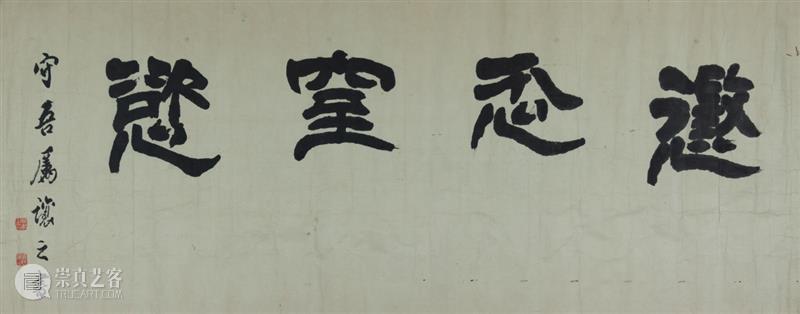 懲忿窒慾
守吾屬讓之
崇真艺客
TRUEART.COM